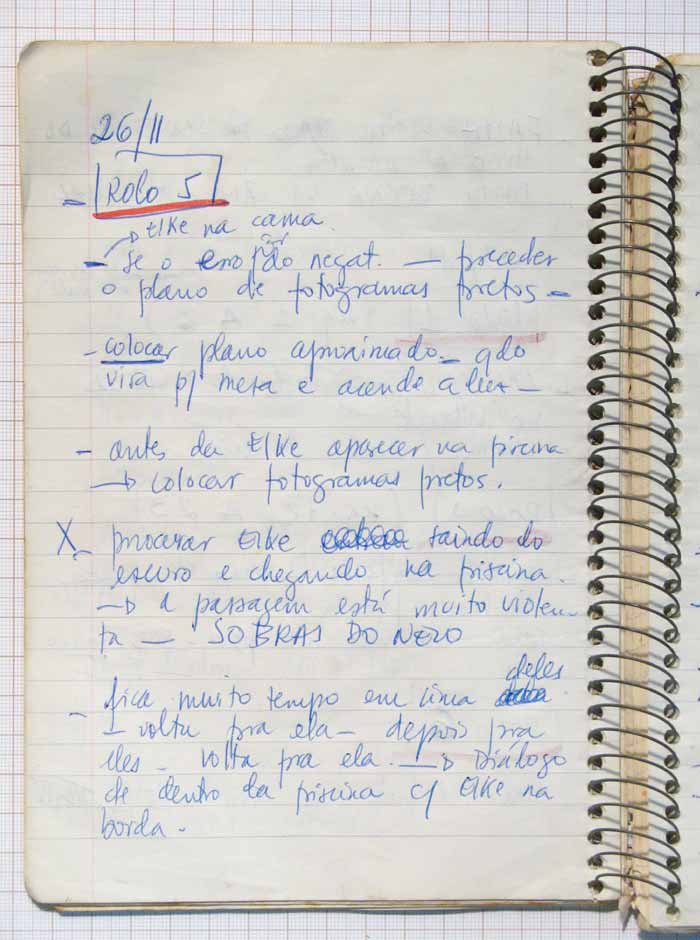 26/11
- Rolo 5
Elke na cama.
- se o erro não negat. — preceder
o plano de fotogramas pretos -
- colocar plano aproximado - qdo
vira p/ mesa e acende a luz -
- antes da Elke aparecer na piscina
→ colocar fotogramas pretos.
X - procurar Elke saindo do
escuro e chegando na piscina.
→ a passagem está muito violen-
ta — SOBRAS DO NENO
- fica muito tempo em cima deles
- volta pra ela - depois pra
eles - volta pra ela. → Diálogo
de dentro da piscina c/ Elke na
borda.